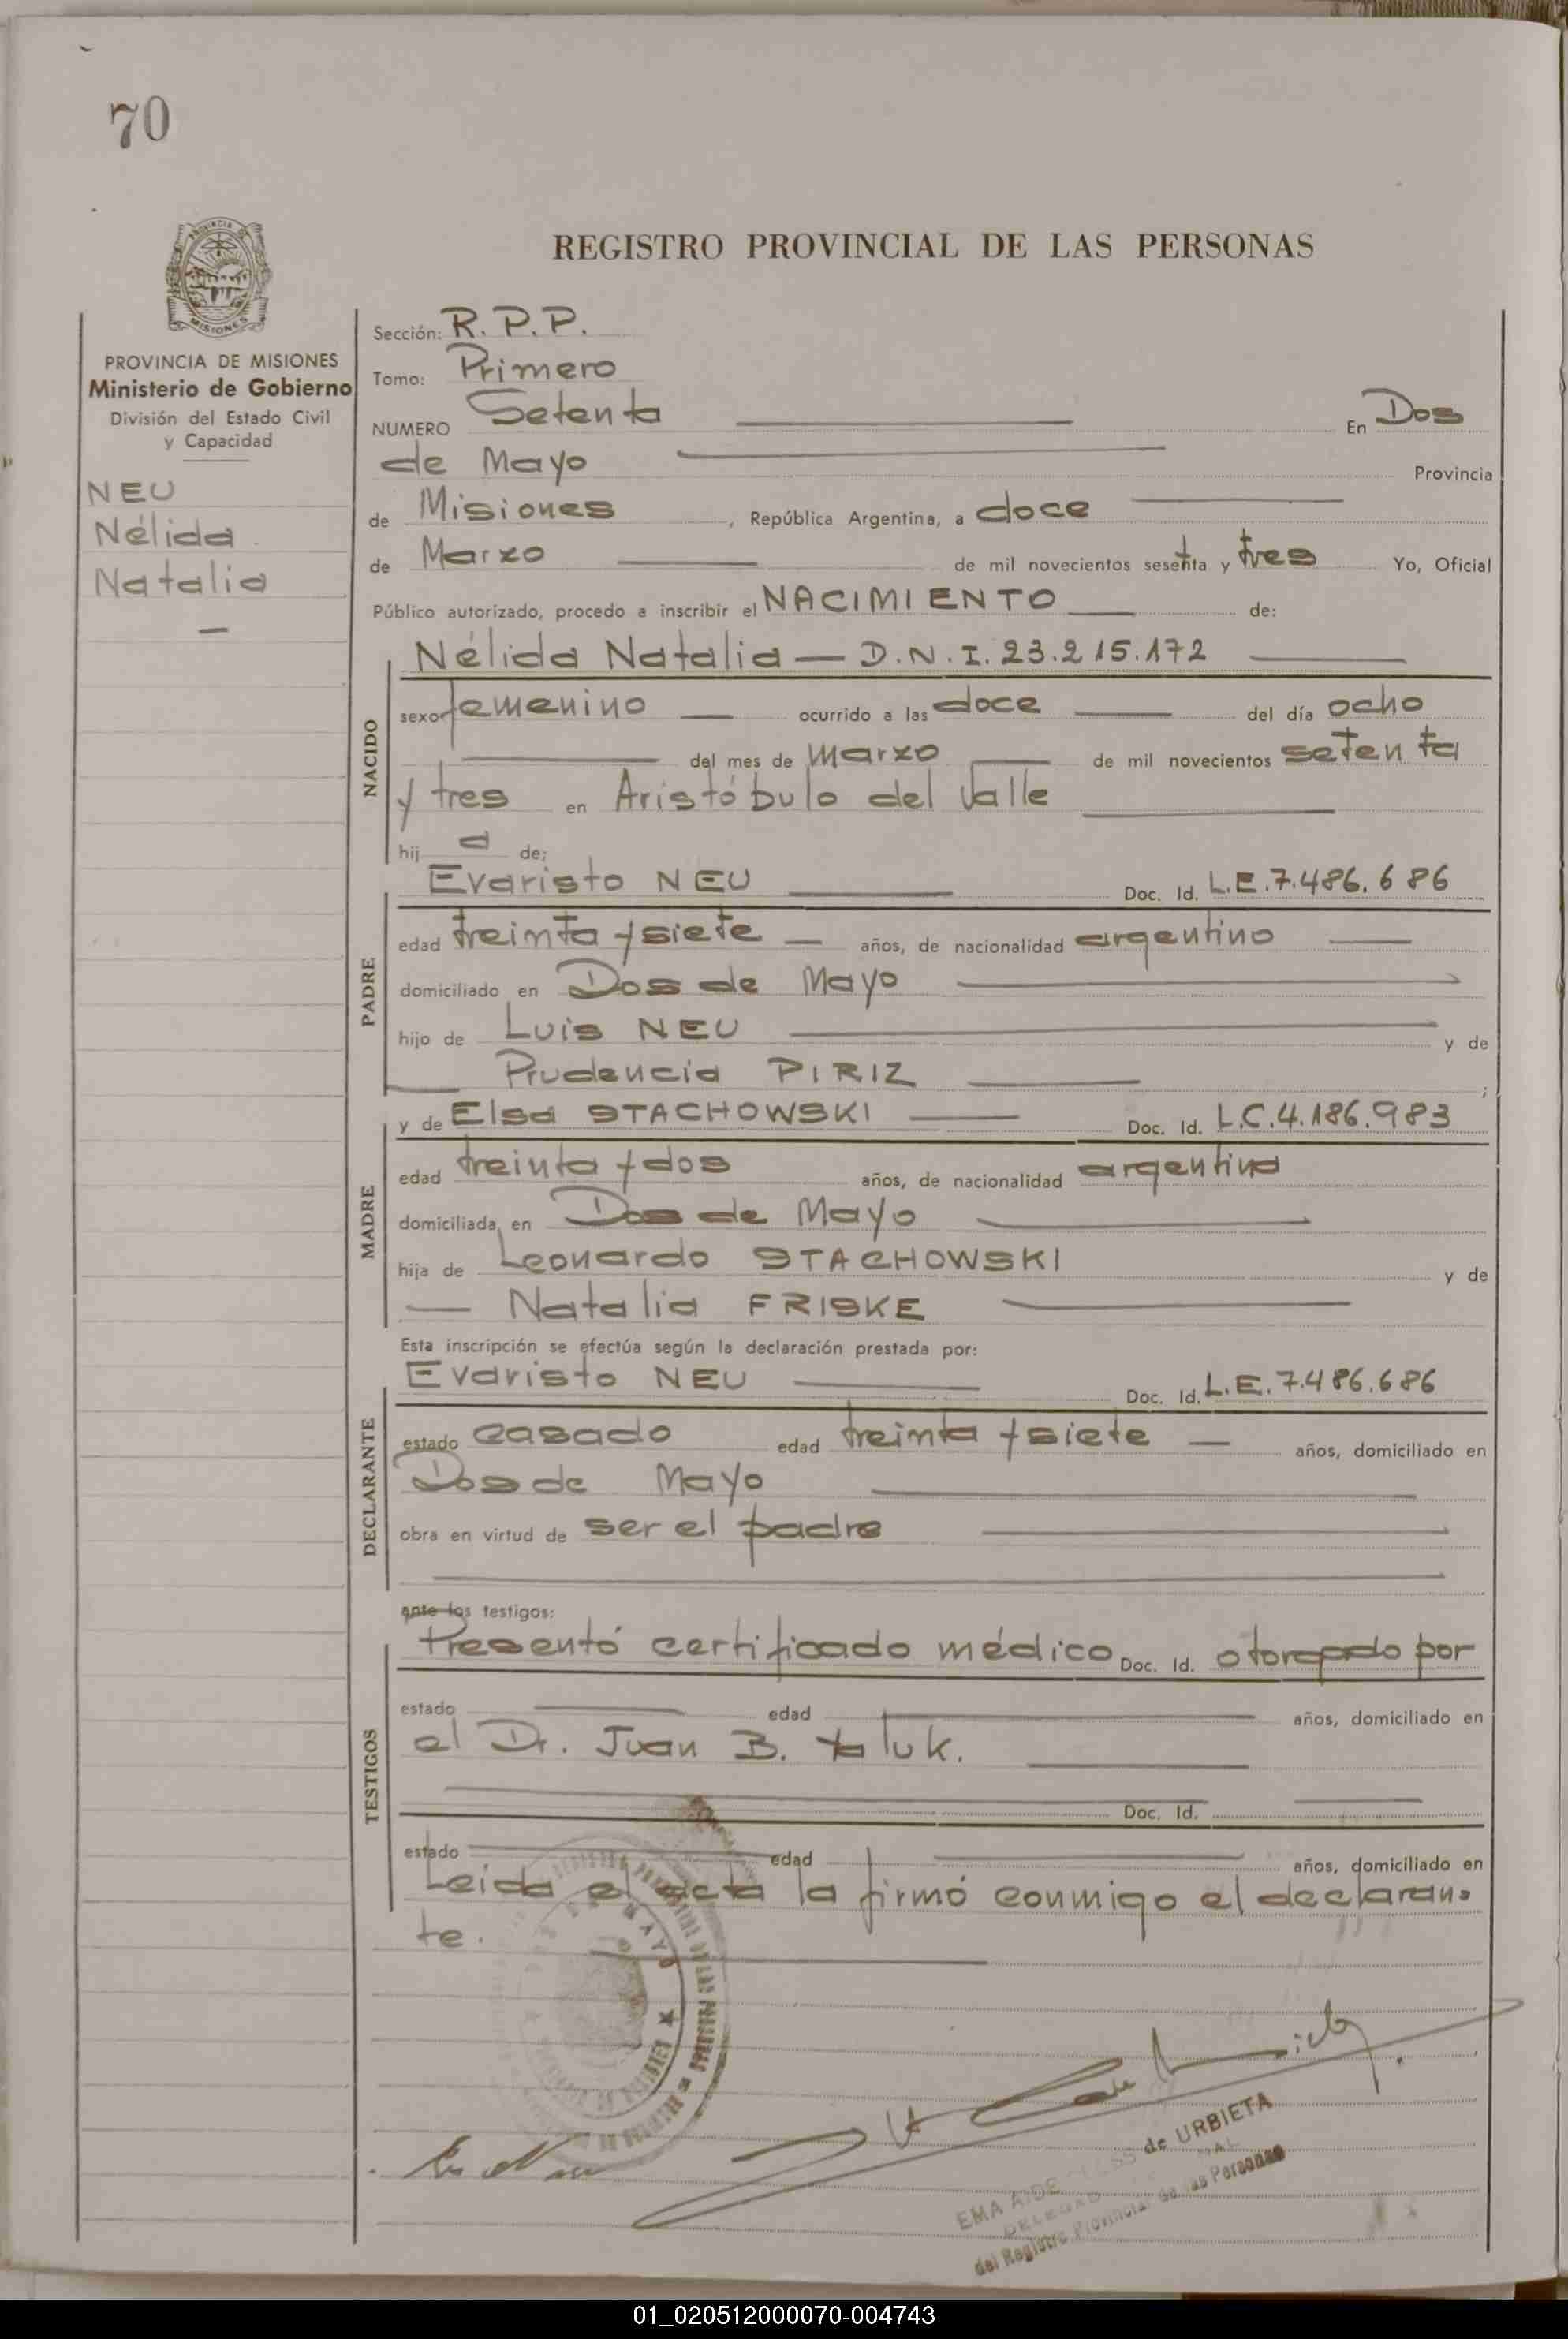 70
REGISTRO PROVINCIAL DE LAS PERSONAS
MISIONES
PROVINCIA DE MISIONES
Ministerio de Gobierno
División del Estado Civil
y Capacidad
NEU
Nélida
Natalia
Sección: R. P. P.
Tomo: Primero
NUMERO Setenta En Dos
de Mayo Provincia
de Misiones, República Argentina, a doce
de Marzo de mil novecientos sesenta y tres Yo, Oficial
Público autorizado, procedo a inscribir el NACIMIENTO de:
Nélida Natalia — D.N.I. 23.215.172
NACIDO
sexo femenino ocurrido a las doce del día ocho
del mes de marzo de mil novecientos setenta
y tres en Aristóbulo del Valle
hij a de;
Evaristo NEU Doc. Id. L.E. 7.486.686
PADRE
edad treinta y siete — años, de nacionalidad argentino
domiciliado en Dos de Mayo
hijo de Luis NEU y de
Prudencia PIRIZ ;
y de Elsa STACHOWSKI Doc. Id. L.C. 4.186.983
MADRE
edad treinta y dos años, de nacionalidad argentina
domiciliada en Dos de Mayo
hija de Leonardo STACHOWSKI y de
Natalia FRISKE
Esta inscripción se efectúa según la declaración prestada por:
Evaristo NEU Doc. Id. L.E. 7.486.686
DECLARANTE
estado casado edad treinta y siete — años, domiciliado en
Dos de Mayo
obra en virtud de ser el padre
ante los testigos:
Presentó certificado médico Doc. Id. otorgado por
TESTIGOS
estado edad años, domiciliado en
el Dr. Juan B.
Doc. Id.
estado edad años, domiciliado en
Leida el acta la firmó conmigo el declaran-
te.
de URBIETA
del Registro Provincial de las Personas
01_020512000070-004743